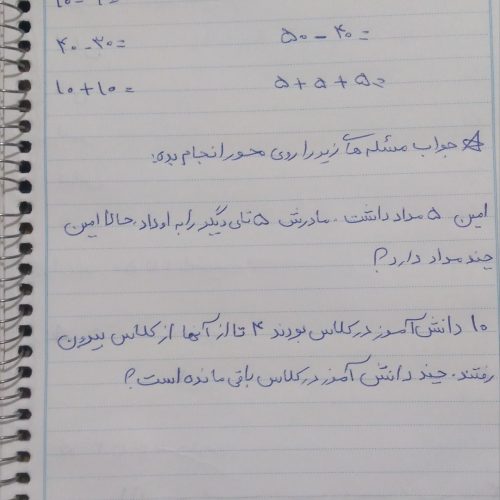 ۴۰-۳۰= ۵۰-۴۰=
۱۰+۱۰= ۵+۵+۵=
جواب مسئله های زیر را روی محور انجام بده:
امین ۵ مداد داشت. مادرش ۵ تای دیگر را به او داد. حالا امین
چند مداد دارد؟
۱۰ دانش آموز در کلاس بودند ۴ تا از آنها از کلاس بیرون
رفتند. چند دانش آموز در کلاس باقی مانده است؟